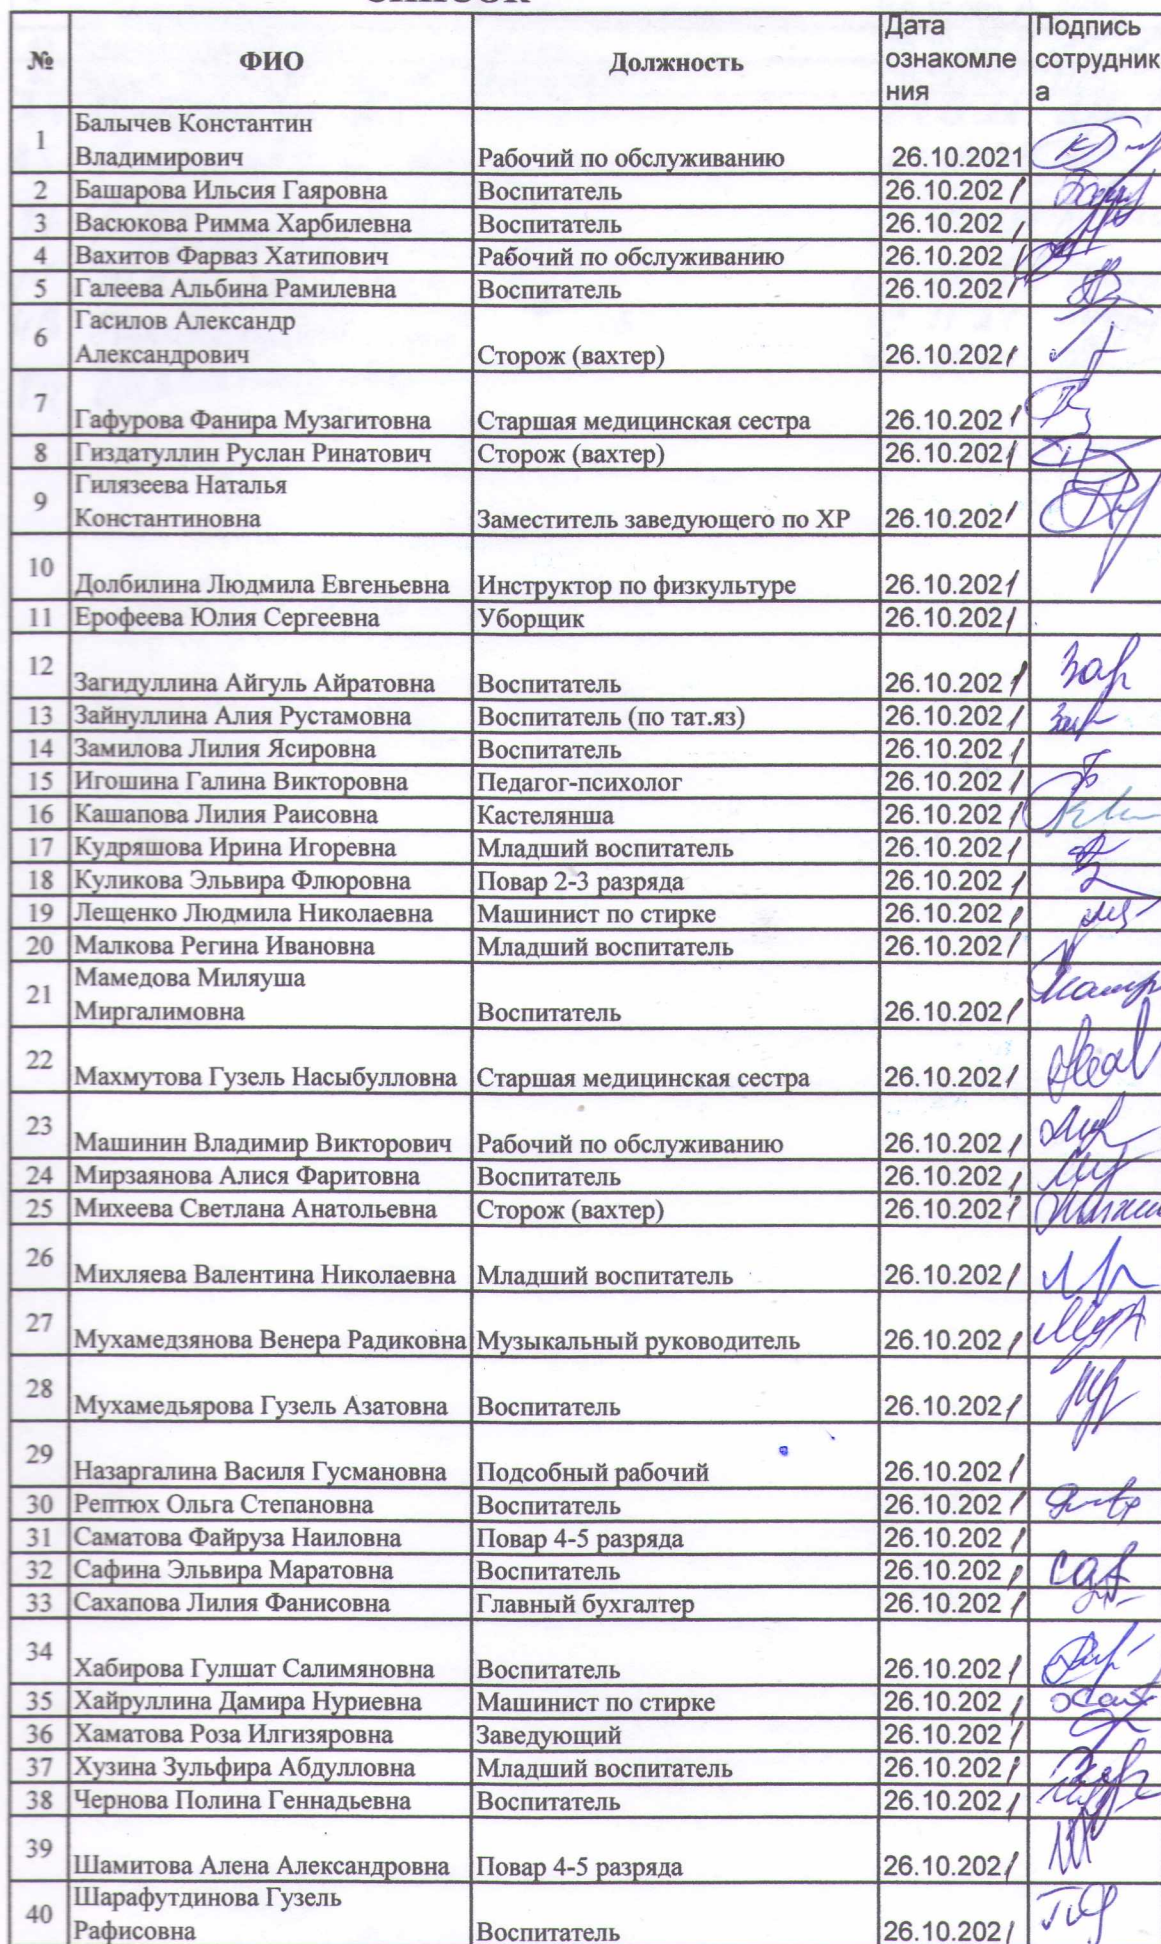 № ФИО Должность Дата ознакомле ния Подпись сотрудник а
1 Балычев Константин Владимирович Рабочий по обслуживанию 26.10.2021
2 Башарова Ильсия Гаяровна Воспитатель 26.10.2021
3 Васюкова Римма Харбилевна Воспитатель 26.10.2021
4 Вахитов Фарваз Хатипович Рабочий по обслуживанию 26.10.2021
5 Галеева Альбина Рамилевна Воспитатель 26.10.2021
6 Гасилов Александр Александрович Сторож (вахтер) 26.10.2021
7 Гафурова Фанира Музагитовна Старшая медицинская сестра 26.10.2021
8 Гиздатуллин Руслан Ринатович Сторож (вахтер) 26.10.2021
9 Гилязеева Наталья Константиновна Заместитель заведующего по ХР 26.10.2021
10 Долбилина Людмила Евгеньевна Инструктор по физкультуре 26.10.2021
11 Ерофеева Юлия Сергеевна Уборщик 26.10.2021
12 Загидуллина Айгуль Айратовна Воспитатель 26.10.2021
13 Зайнуллина Алия Рустамовна Воспитатель (по тат.яз) 26.10.2021
14 Замилова Лилия Ясировна Воспитатель 26.10.2021
15 Игошина Галина Викторовна Педагог-психолог 26.10.2021
16 Кашапова Лилия Раисовна Кастелянша 26.10.2021
17 Кудряшова Ирина Игоревна Младший воспитатель 26.10.2021
18 Куликова Эльвира Флюровна Повар 2-3 разряда 26.10.2021
19 Лещенко Людмила Николаевна Машинист по стирке 26.10.2021
20 Малкова Регина Ивановна Младший воспитатель 26.10.2021
21 Мамедова Миляуша Миргалимовна Воспитатель 26.10.2021
22 Махмутова Гузель Насыбулловна Старшая медицинская сестра 26.10.2021
23 Машинин Владимир Викторович Рабочий по обслуживанию 26.10.2021
24 Мирзаянова Алися Фаритовна Воспитатель 26.10.2021
25 Михеева Светлана Анатольевна Сторож (вахтер) 26.10.2021
26 Михляева Валентина Николаевна Младший воспитатель 26.10.2021
27 Мухамедзянова Венера Радиковна Музыкальный руководитель 26.10.2021
28 Мухамедьярова Гузель Азатовна Воспитатель 26.10.2021
29 Назаргалина Василя Гусмановна Подсобный рабочий 26.10.2021
30 Рептюх Ольга Степановна Воспитатель 26.10.2021
31 Саматова Файруза Наиловна Повар 4-5 разряда 26.10.2021
32 Сафина Эльвира Маратовна Воспитатель 26.10.2021
33 Сахапова Лилия Фанисовна Главный бухгалтер 26.10.2021
34 Хабирова Гулшат Салимяновна Воспитатель 26.10.2021
35 Хайруллина Дамира Нуриевна Машинист по стирке 26.10.2021
36 Хаматова Роза Илгизяровна Заведующий 26.10.2021
37 Хузина Зульфира Абдулловна Младший воспитатель 26.10.2021
38 Чернова Полина Геннадьевна Воспитатель 26.10.2021
39 Шамитова Алена Александровна Повар 4-5 разряда 26.10.2021
40 Шарафутдинова Гузель Рафисовна Воспитатель 26.10.2021